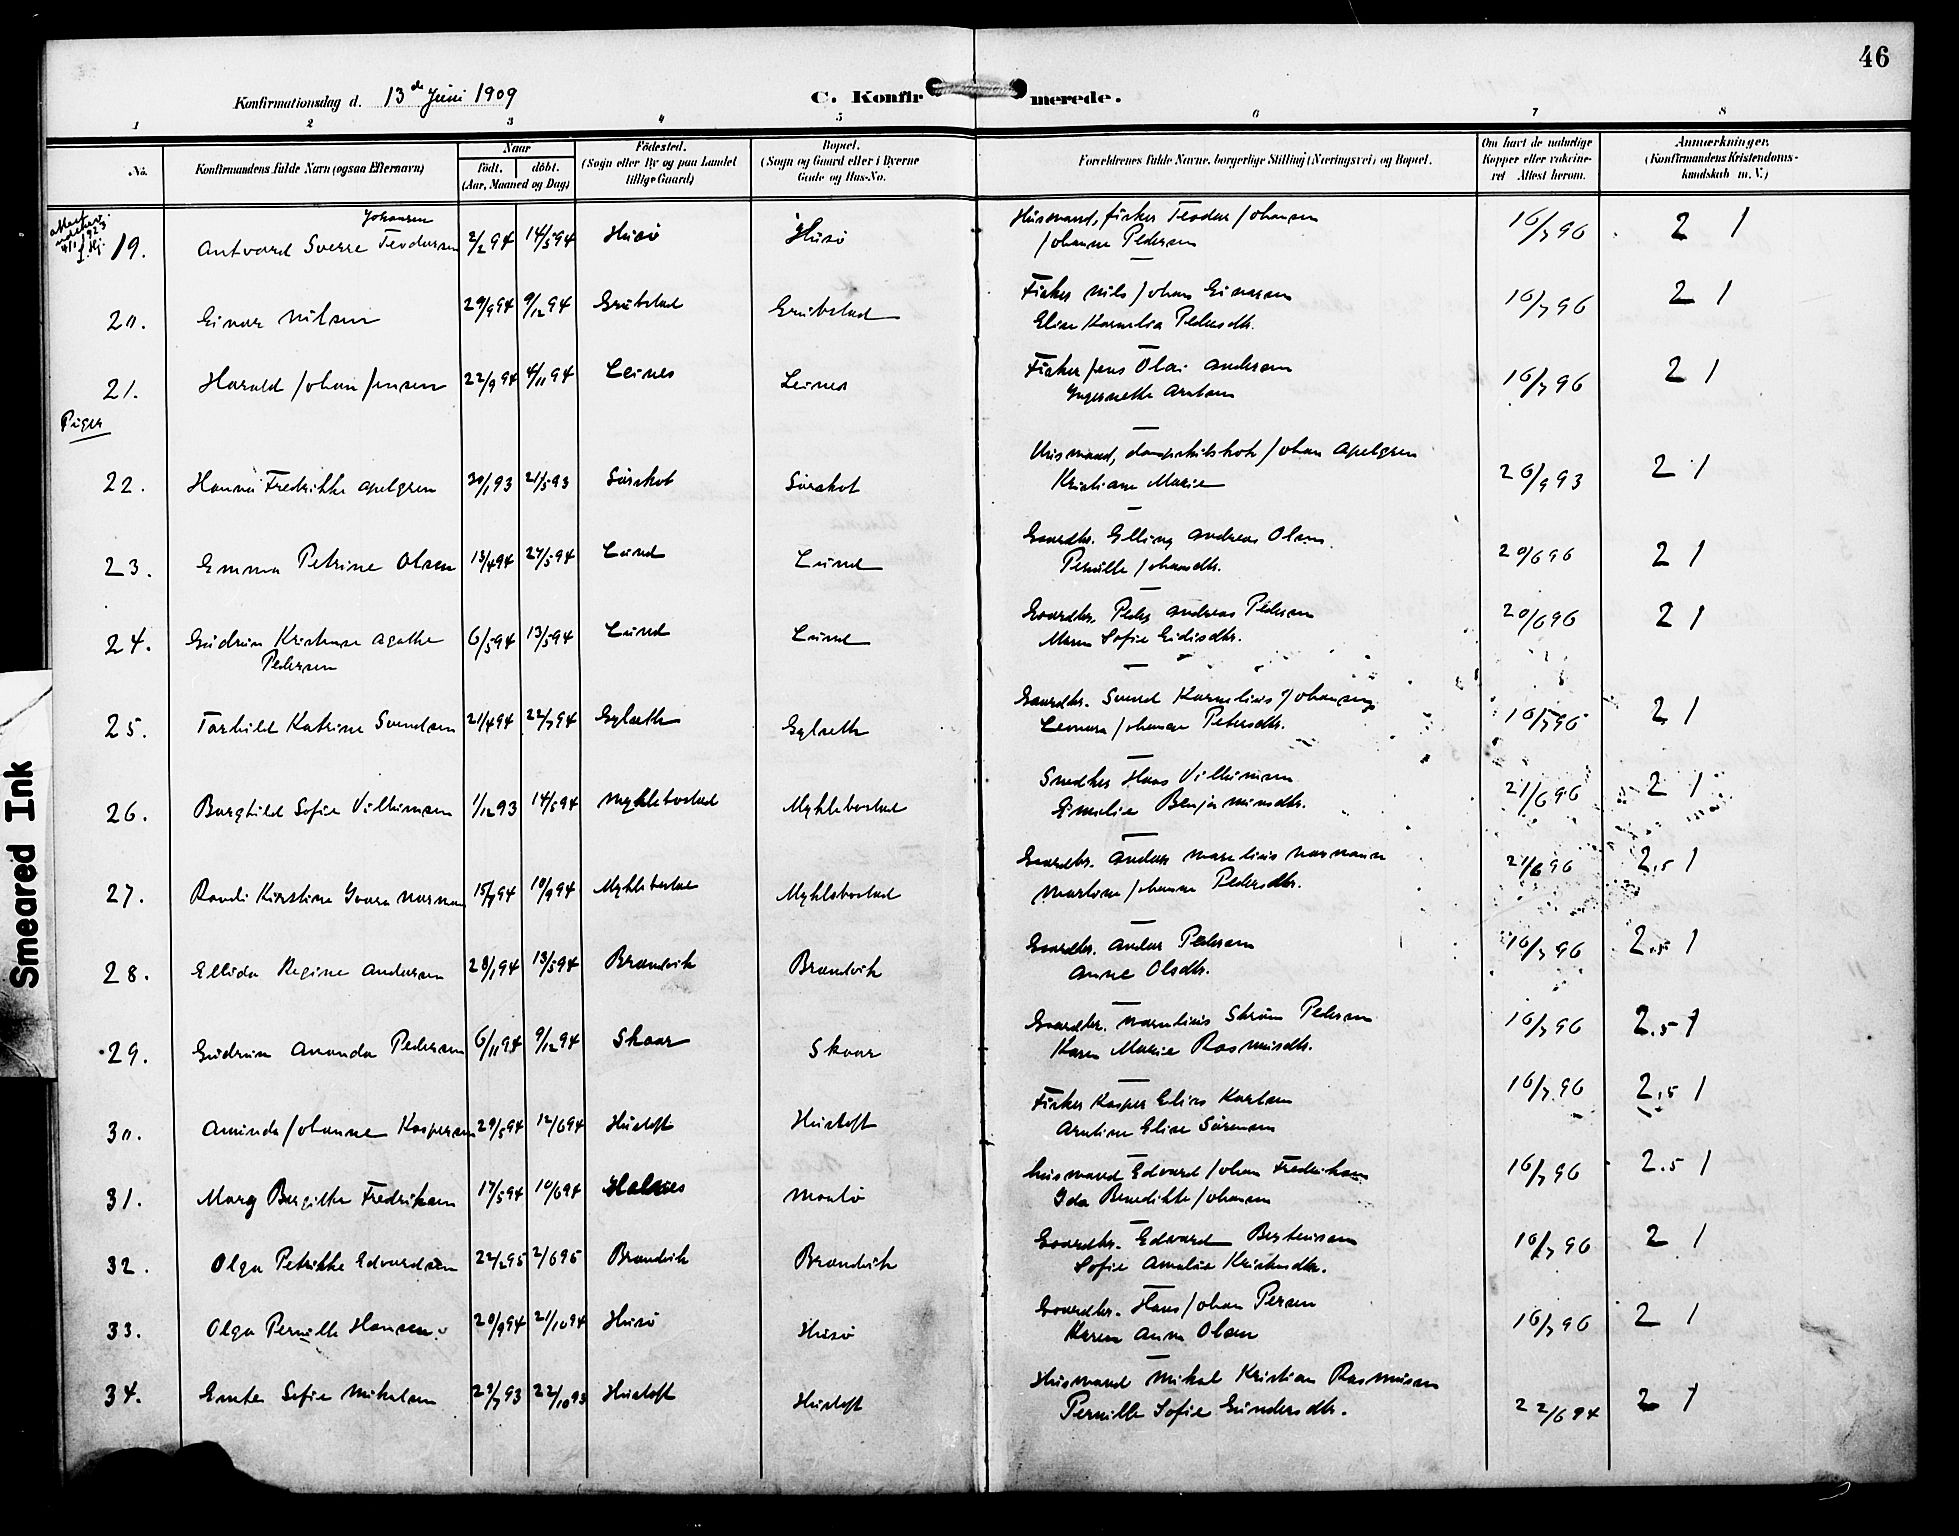 46
Konfirmationsdag d. 13de Juni 1909
C. Konfirmerede.
1 2 3 4 5 6 7 8
No. Konfirmandens fulde Navn (ogsaa Efternavn) Naar födt. döbt. (Aar, Maaned og Dag) Födested. (Sogn eller By og paa Landet tillige Gaard) Bopæl. (Sogn og Gaard eller i Byerne Gade og Hus-No. Forældrenes fulde Navne, borgerlige Stilling (Næringsvei) og Bopæl. Om havt de naturlige Kopper eller vaccineret Attest herom. Anmærkninger. (Konfirmandens Kristendomskundskab m. V.)
Johansen
19. Antvard Sverre Teodorsen 2/2 94 14/5 94 Husö Husö Husmand, fisker Teodor Johansen 16/7 96 2 1
Johanne Pedersen
20. Einar Nilsen 29/9 94 9/12 94 Fisker Nils Johans Einarsen 16/7 96 2 1
Elise Kornelia Pedersdtr.
21. Harald Johan Jensen 22/9 94 4/11 94 Leines Leines Fisker Jens Olai Andersen 16/7 96 2 1
Arntsen
Piger
22. Hanna Fredrikke Apelgren 30/1 93 21/5 93 Sörskot Sörskot Husmand, Johan Apelgren 26/9 93 2 1
Kristiane Marie
23. Emma Petrine Olsen 13/4 94 27/5 94 Lund Lund Gaardbr. Elling Andreas Olsen 20/6 96 2 1
Pernille Johansdtr.
24. Gudrun Kristense Agathe 6/5 94 13/5 94 Lund Lund Gaardbr. Peder Andreas Pedersen 20/6 96 2 1
Pedersen Maren Sofie Eidisdtr.
25. Torhild Katrine Svendsen 21/4 94 22/7 94 Gylseth Gylseth Gaardbr. Svend Kornelius Johansen 16/7 96 2 1
Leonora Johanne Petersdtr.
26. Borghild Sofie Villumsen 1/12 93 14/5 94 Myklebostad Myklebostad Snedker Hans Villumsen 21/6 96 2 1
Emelie Benjaminsdtr.
27. Randi Kirstine Ivara Norman 15/7 94 10/9 94 Myklebostad Myklebostad Gaardbr. Anders Marelius Normann 21/6 96 2.5 1
Martine Johanne Pedersdtr.
28. Ellida Regine Andersen 28/1 94 13/5 94 Brændvik Brændvik Gaardbr. Anders Pedersen 16/7 96 2.5 1
Anne Olsdtr.
29. Gudrun Ananda Pedersen 6/11 94 9/12 94 Skaar Skaar Gaardbr. Ström Pedersen 16/7 96 2.5 1
Karen Marie Rasmusdtr.
30. Aminda Johanne Kaspersen 29/5 94 12/6 94 Hustoft Hustoft Fisker Kasper Elias Karlsen 16/7 96 2.5 1
Arntine Elise Sörensen
31. Mary Bergitte Fredriksen 17/5 94 10/6 94 Halsnes Husmand Edvard Johan Fredriksen 16/7 96 2.5 1
Ida Benedikte Johansen
32. Olga Petrikke Edvardsen 22/2 95 2/6 95 Brændvik Brændvik Gaardbr. Edvard Berteussen 16/7 96 2 1
Sofie Amalie Kristensdtr.
33. Olga Pernille Hansen 20/9 94 21/10 94 Husö Husö Gaardbr. Hans Johan Persen 16/7 96 2 1
Karen Anna Olsen
34. Sofie Mikalsen 29/7 93 22/10 93 Hustoft Hustoft Husmand Mikal Kristian Rasmussen 22/6 94 2 1
Pernille Sofie Gundersdtr.
Smeared Ink